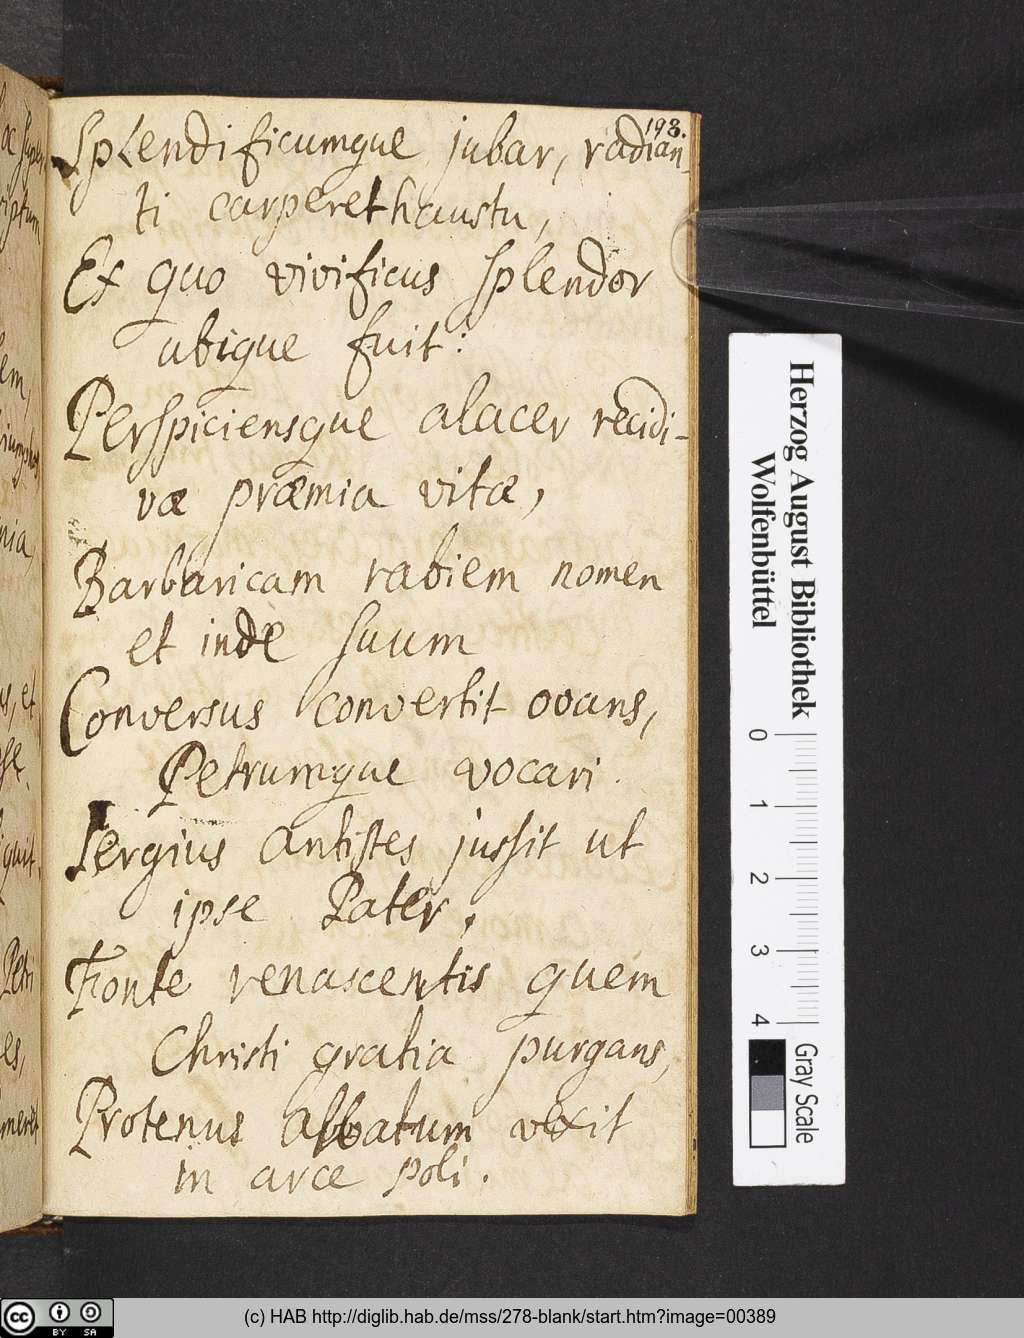 193.
Splendificumque jubar, radian-
ti carperet haustu,
Ex quo vivificus splendor
ubique fuit:
Perspiciensque alacer recidi-
væ præmia vitæ,
Barbaricam rabiem nomen
et inde suum
Conversus convertit ovans,
Petrumque vocari
Sergius antistes jussit ut
ipse Pater,
Fonte renascentis quem
Christi gratia purgans,
Protenus albatum vexit
in arce poli.
Herzog August Bibliothek
Wolfenbüttel
0 1 2 3 4
Gray Scale
(c) HAB http://diglib.hab.de/mss/278-blank/start.htm?image=00389
cc BY SA